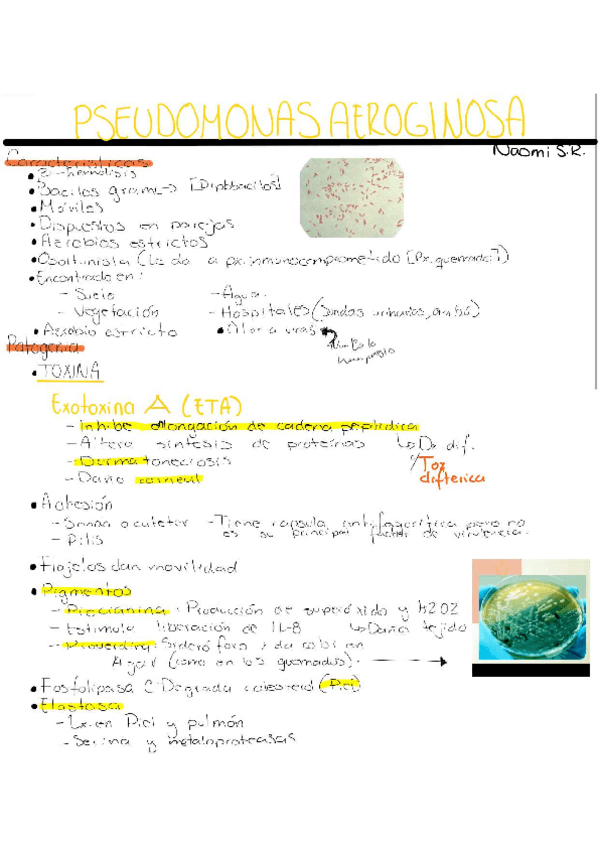 PSEUDOMONAS AEROGINOSA
Naomi S.R.
Características
• β-hemólisis
• Bacilos gram(-) → [Diplobacilos]
• Móviles
• Dispuestos en parejas
• Aerobios estrictos
• Oportunista (Le da a px. inmunocomprometido [Px. quemado?])
• Encontrado en:
- Suelo
- Agua.
- Vegetación
- Hospitales (Sondas urinarias,
• Aerobio estricto
• Olor a uvas
Patogenia
• TOXINA
Exotoxina A (ETA)
- Inhibe elongación de cadena peptídica
- Altera síntesis de proteínas ↳ Dx dif.
- Dermatonecrosis
c/Tox
- Daño corneal
difterica
• Adhesión
- Sonda o cateter
- Tiene capsula antifagocítica pero no
- Pilis
es su principal factor de virulencia.
• Flajelos dan movilidad
• Pigmentos
- Piocianina: Producción de superóxido y H2O2
- Estimula liberación de IL-8 ↳ Daña tejido
- Pioverdina: Sideróforo y da color en
Agar (como en los quemados). →
• Fosfolipasa C: Degrada (Piel)
• Elastasa
- Lx. en Piel y pulmón
- Serina y metaloproteasas